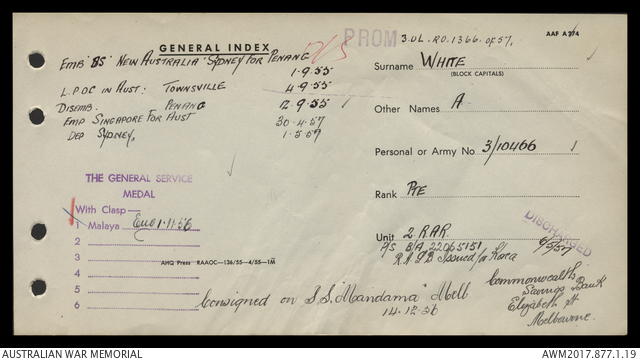 GENERAL INDEX
PROM
3.OL.RO.1366.of 57.
AAF A 274
EMB "SS" NEW AUSTRALIA" SYDNEY FOR PENANG
1.9.55
L.P.O.C IN AUST: TOWNSVILLE 4.9.55
DISEMB. PENANG 12.9.55
EMB SINGAPORE FOR AUST 30.4.57
DEP SYDNEY, 1.5.57
Surname WHITE
(BLOCK CAPITALS)
Other Names A.
Personal or Army No. 3/10466
Rank PTE
Unit 2 RAR
P/S B/A 22065151
R.A.S.B Issued for Korea
DISCHARGED
THE GENERAL SERVICE
MEDAL
With Clasp—
1 Malaya Emb 1.11.56
2
3
4
5
6
AHQ Press RAAOC—136/55—4/55—1M
Consigned on S.S. "Mandama" Melb
14.12.56
Commonwealth
Savings Bank
Elizabeth St
Melbourne.
AUSTRALIAN WAR MEMORIAL
AWM2017.877.1.19